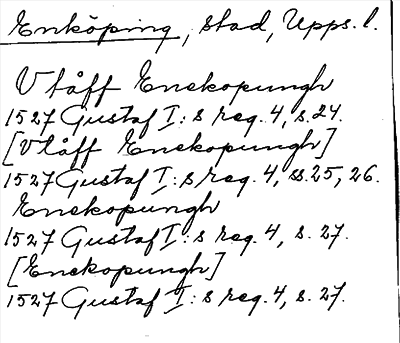 Enköping, stad, Upps. l.
Vtåff Enekopungh
1527 Gustaf I:s reg. 4, s. 24.
[Vtåff Enekopungh]
1527 Gustaf I:s reg. 4, ss. 25, 26.
Enekopungh
1527 Gustaf I:s reg. 4, s. 27.
[Enekopungh]
1527 Gustaf I:s reg. 4, s. 27.